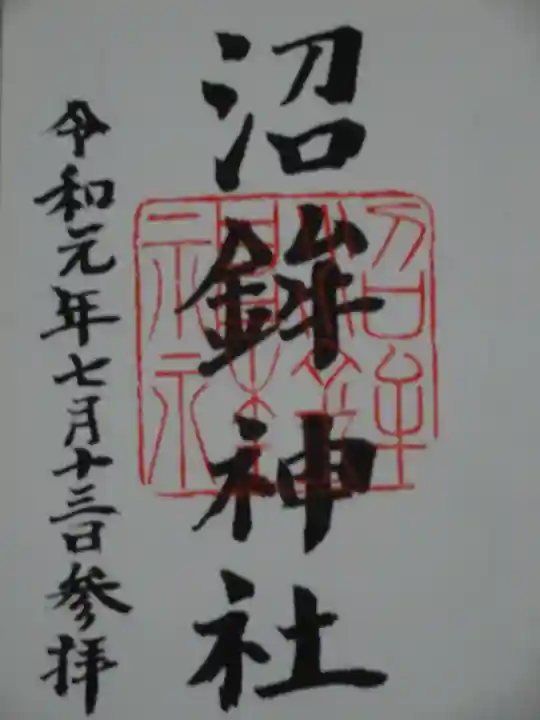 沼鉾神社
令和元年七月十三日参拝